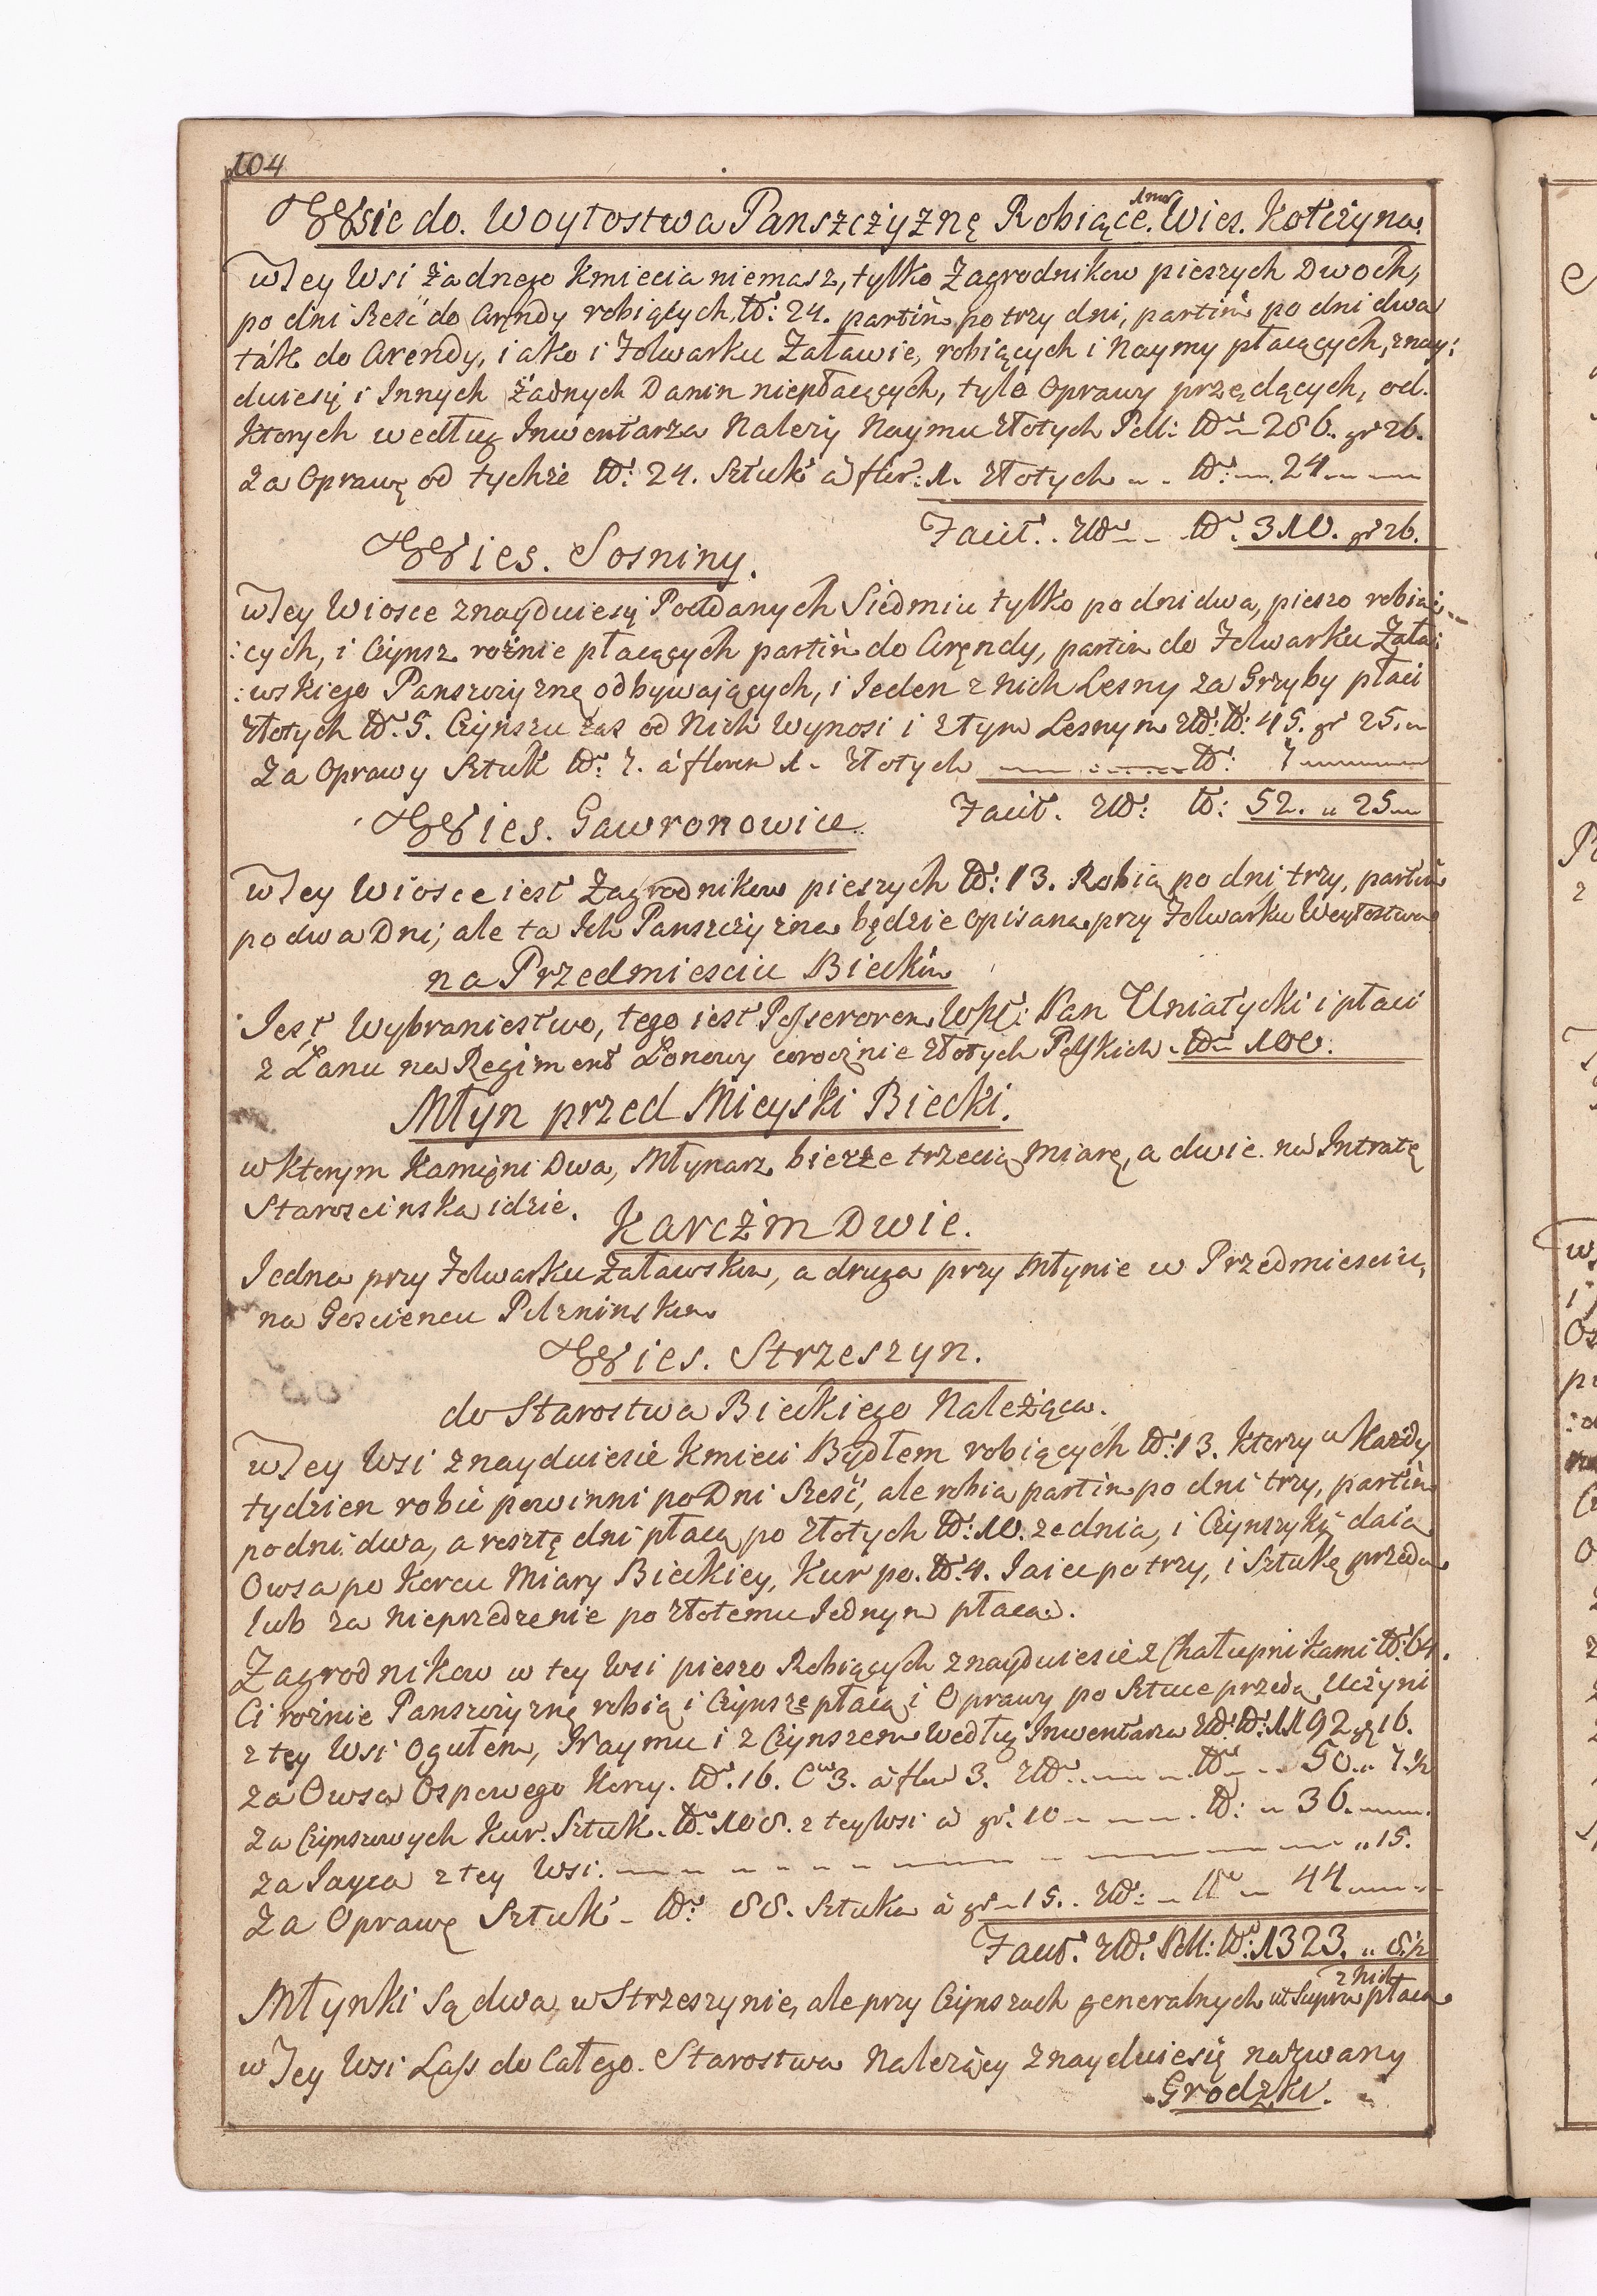 104
Wsie do. Woytostwa Panszczyznę Robiące. 1mo Wies. Kotczyna.
w Jey Wsi żadnego Kmiecia niemasz, tylko Zagrodnikow pieszych Dwoch,
po dni Sześć do Aręndy robiących, No: 24. partim po trzy dni, partim po dni dwa
ták do Arendy, iako i Folwarku Załawie, robiących i Naymy płacących, znay:
duiesię i Innych żadnych Danin niepłacących, tylo Oprawy przędących, od.
Ktorych według Inwentarza Należy Naymu Złotych Poll: No 286. gr 26.
Za Oprawę od tychże No: 24. Sztuk à flor: 1. Złotych No: 24
Facit. Zło No. 310. gr 26.
Wies. Sosniny.
w Jey Wiosce znayduiesię Poddanych Siedmiu tylko po dni dwa, pieszo robią:
:cych, i Czynsz rożnie płacących partim do Aręndy, partim do Folwarku Zała:
:wskiego Panszczyznę odbywających, i Jeden z nich Lesny za Grzyby płaci
Złotych No. 5. Czynszu zas od Nich Wynosi i ztym Lesnym Zło: No: 45. gr 25.
Za Oprawy Sztuk No: 7. à floren 1. Złotych No: 7
Facit. Zło: No: 52. " 25
Wies. Gawronowice
w Jey Wiosce iest Zagrodnikow pieszych No: 13. Robią po dni trzy, partim
po dwa Dni; ale ta Ich Panszczyzna będzie opisana przy Folwarku Woytostwa
na Przedmiesciu Bieckim
Jest Wybraniestwo, tego iest Possessorem Pan Uniatycki i płaci
z Łanu na Regiment Łanowy corocznie Złotych Polskich No 100.
Młyn przed Mieyski Biecki.
w Ktorym Kamięni Dwa, Młynarz bierze trzecią Miarę, a dwie na Intratę
Staroscinską idzie.
Karczm Dwie.
Jedna przy Folwarku Załawskim, a druga przy Młynie w Przedmiesciu,
na Gosciencu Pilzninskim
Wies. Strzeszyn.
do Starostwa Bieckiego Należąca.
w Jey Wsi znayduiesie Kmieci Bydłem robiących No: 13. Ktorzy w Każdy
tydzien robić powinni po Dni Sześć, ale robią partim po dni trzy, partim
po dni dwa, a resztę dni płacą po Złotych No: 10. ze dnia, i Czynszyki daią
Owsa po Korcu Miary Bieckiey, Kur po. No. 4. Jaiec po trzy, i Sztukę przędą
lub za Nieprzedzenie po Złotemu Jednym płacą.
Zagrodnikow w tey Wsi pieszo Robiących znayduiesie z Chałupnikami No: 64.
Ci rożnie Panszczyznę robią i Czynsze płacą i Oprawy po Sztuce przedą Uczyni
z tey Wsi Ogułem, Naymu i z Czynszem według Inwentarza Zło: No: 1192 gr 16.
za Owsa Ospowego Korcy. No. 16. Cw 3. à flor 3. Zło No 50. " 7.½
za Czynszowych Kur. Sztuk. No. 108. z tey Wsi à gr. 10 No: " 36.
za Jayca z tey Wsi. " 15.
Za Oprawę Sztuk No: 88. Sztuka à gr 15. Zło: No 44
Facit. Zło: Poll: No: 1323. " 8.½
Młynki Są dwa w Strzeszynie, ale przy Czynszach generalnych ut Supra z Nich płacą
w Jey Wsi Lass do Całego. Starostwa Należący znayduiesię nazwany
Grodzki.